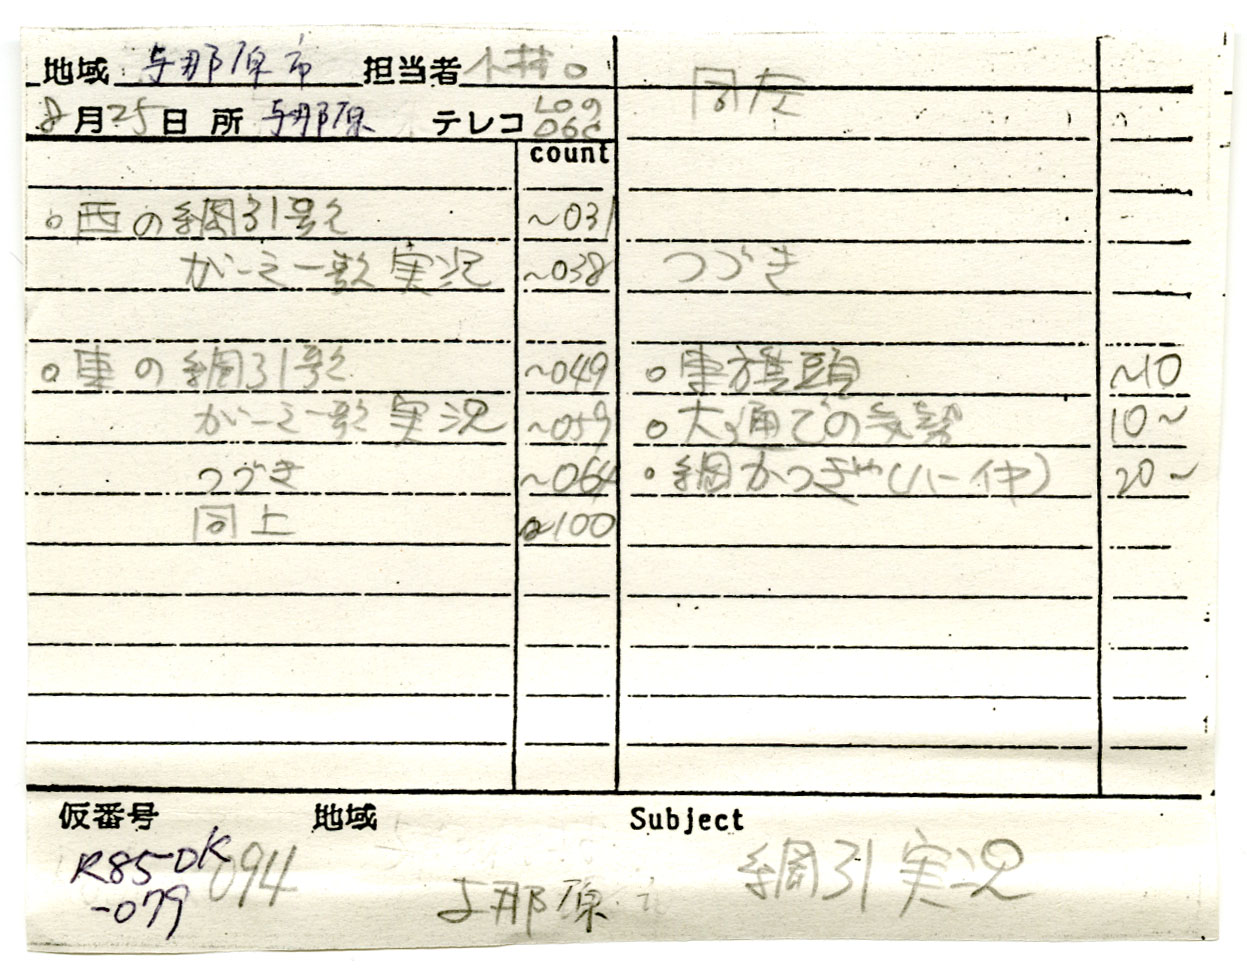 地域 与那原市 担当者 小林
8月25日 所 与那原 テレコ
count
○西の綱引歌 ~031
がーえー歌 実況 ~038
○東の綱引歌 ~049
がーえー歌 実況 ~059
つづき ~064
同上 ~100
同左
つづき
○東旗頭 ~10
○大通での気勢 10~
○綱かつぎや(ハー仲) 20~
仮番号 地域 Subject
R85-OK 094
-079
与那原
綱引実況